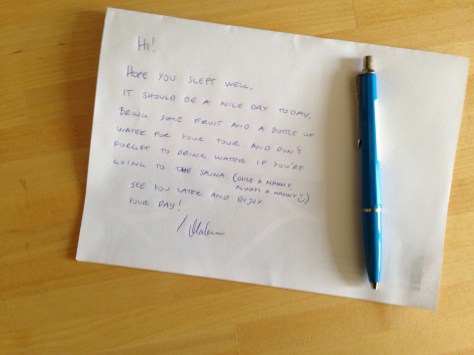 Hi!
HOPE YOU SLEPT WELL.
IT SHOULD BE A NICE DAY TODAY,
BRING SOME FRUIT AND A BOTTLE OF
WATER FOR YOUR TOUR AND DON'T
FORGET TO DRINK WATER IF YOU'RE
GOING TO THE SAUNA (ONCE A NANNY
ALWAYS A NANNY :))
SEE YOU LATER AND ENJOY
YOUR DAY!